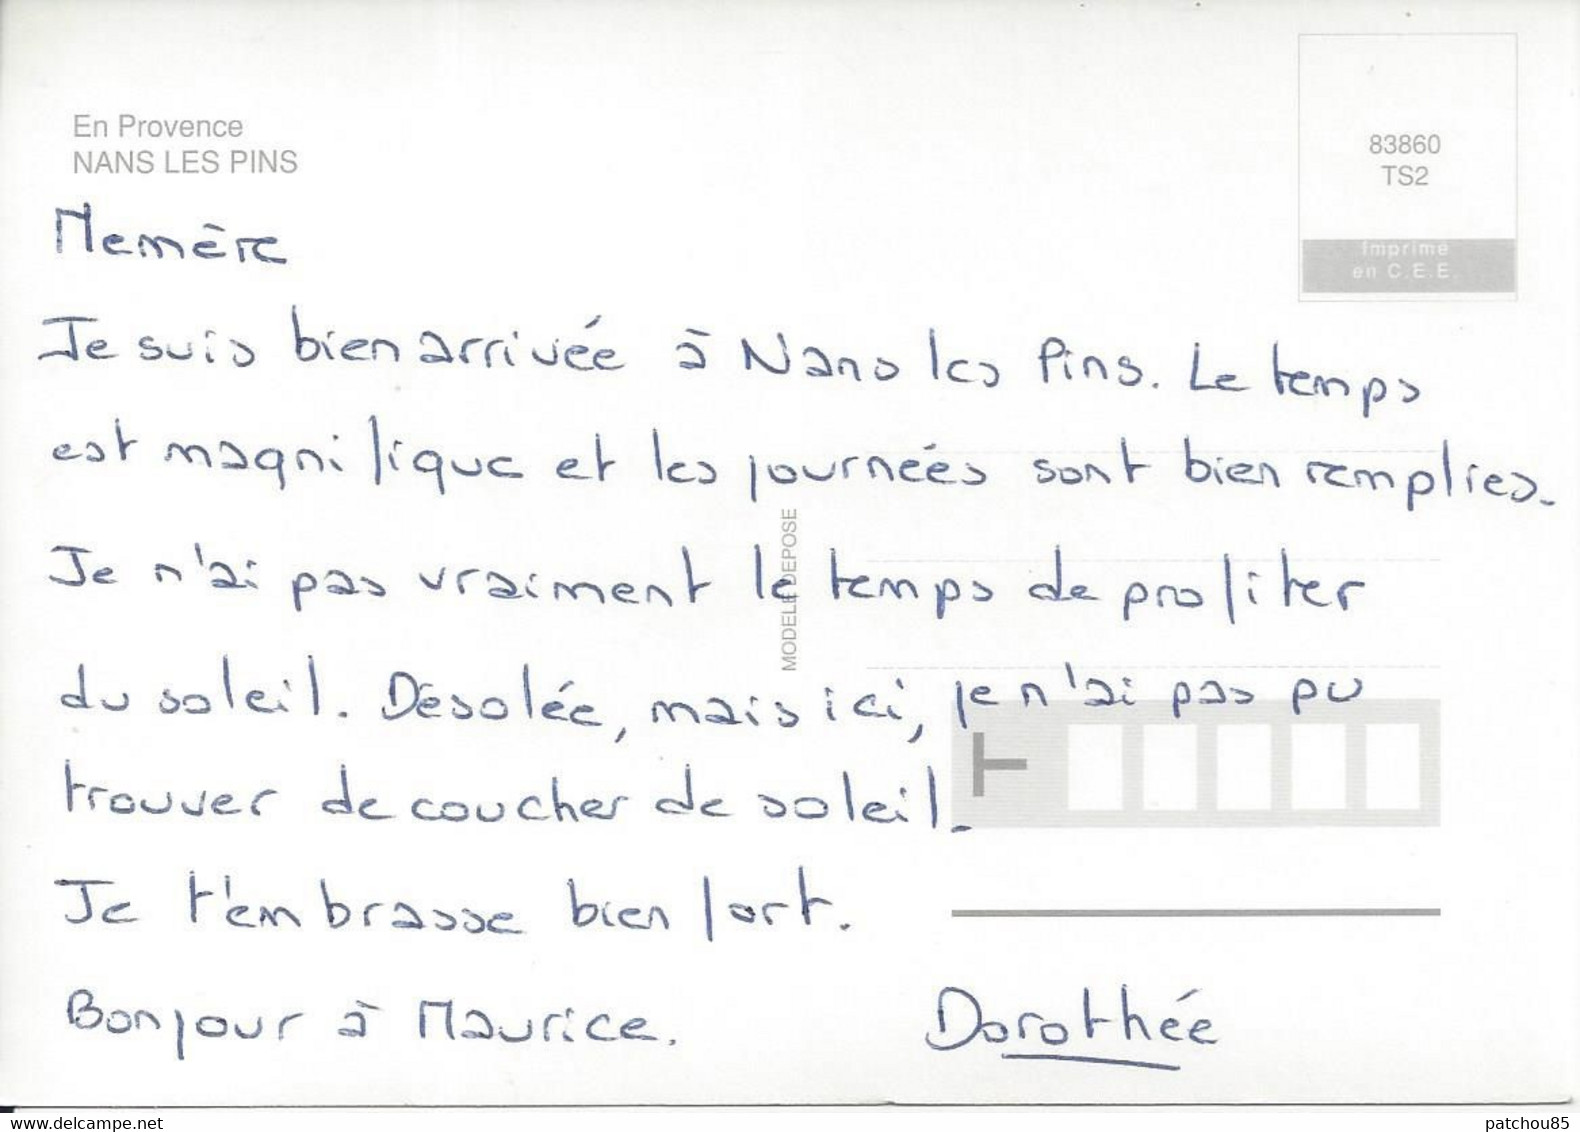 En Provence
NANS LES PINS
83860
TS2
Imprimé
en C.E.E.
Memère
Je suis bien arrivée à Nans les Pins. Le temps
est magnifique et les journées sont bien remplies.
Je n'ai pas vraiment le temps de profiter
du soleil. Désolée, mais ici, je n'ai pas pu
trouver de coucher de soleil.
Je t'embrasse bien fort.
Bonjour à Maurice.
Dorothée
MODELE DEPOSE
T
patchou85